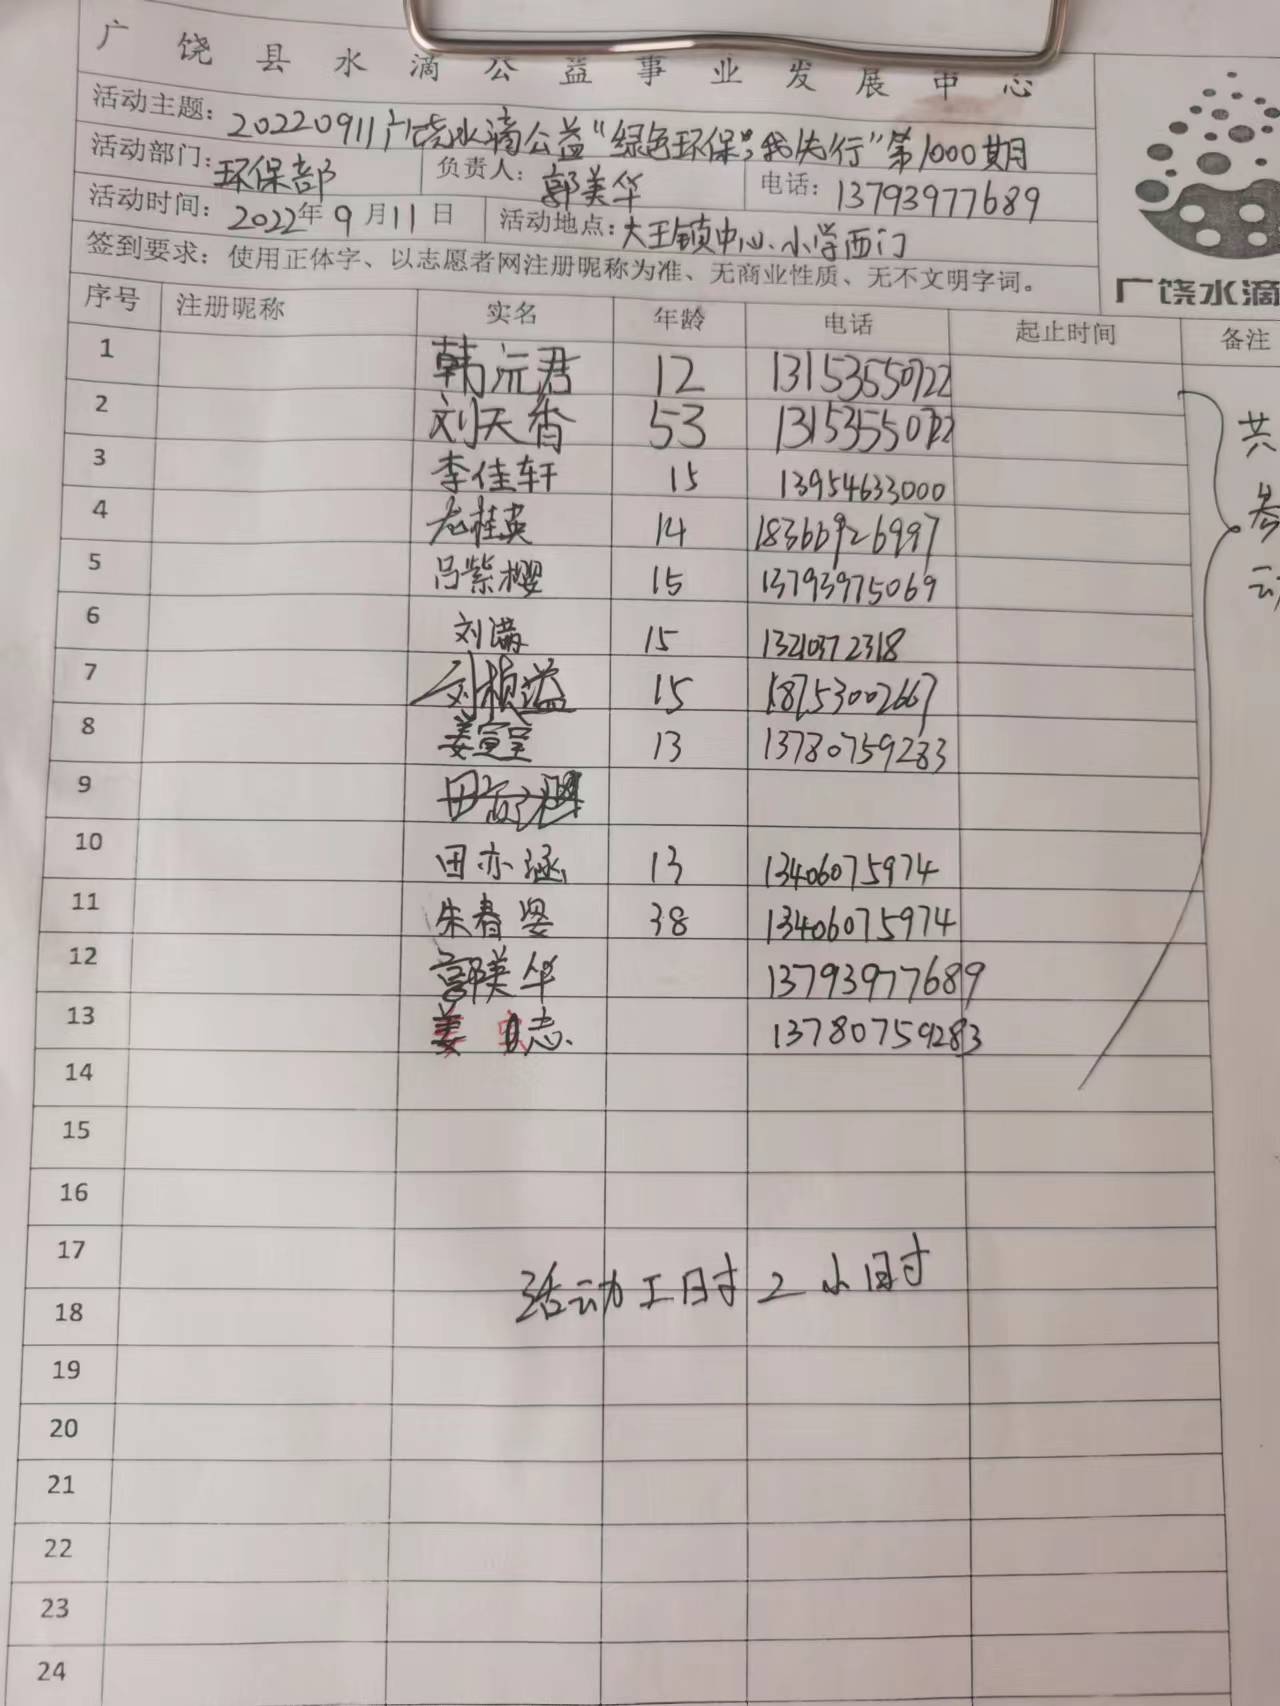 广饶县水滴公益事业发展中心
活动主题：20220911广饶水滴公益“绿色环保，我先行”第1000期
活动部门：环保部 负责人：郭美华 电话：13793977689
活动时间：2022年9月11日 活动地点：大王镇中心小学西门
签到要求：使用正体字、以志愿者网注册昵称为准、无商业性质、无不文明字词。
广饶水滴
序号 注册昵称 实名 年龄 电话 起止时间 备注
1 韩沅君 12 13153550722
2 刘天香 53 13153550722
3 李佳轩 15 13954633000
4 桂英 14 18366926997
5 吕紫樱 15 13793975069
6 刘满 15 13210372318
7 刘桢溢 15 18753002667
8 姜宣呈 13 13780759283
9
10 田亦涵 13 13406075974
11 朱春 38 13406075974
12 郭美华 13793977689
13 姜志 13780759283
共
参
动
14
15
16
17
活动工时2小时
18
19
20
21
22
23
24